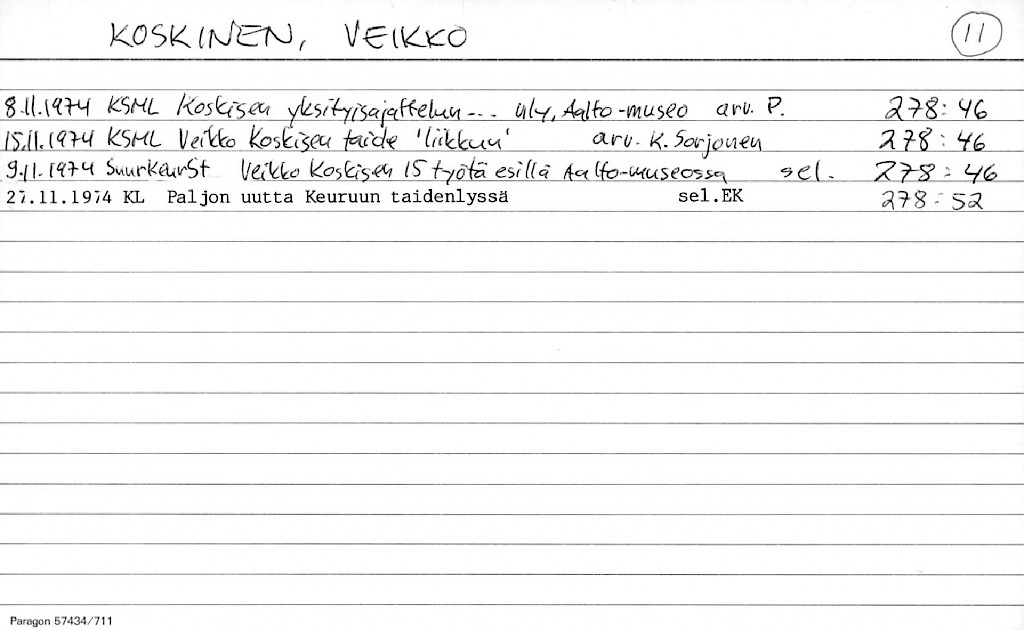 KOSKINEN, VEIKKO 11
8.11.1974 KSML Koskisen yksityisajattelun--. näy, Aalto-museo arv. P. 278:46
15.11.1974 KSML Veikko Koskisen taide 'liikkuu' arv. K. Sorjonen 278:46
9.11.1974 SuurKeurSt Veikko Koskisen 15 työtä esillä Aalto-museossa sel. 278:46
27.11.1974 KL Paljon uutta Keuruun taidenlyssä sel.EK 278:52
Paragon 57434/711